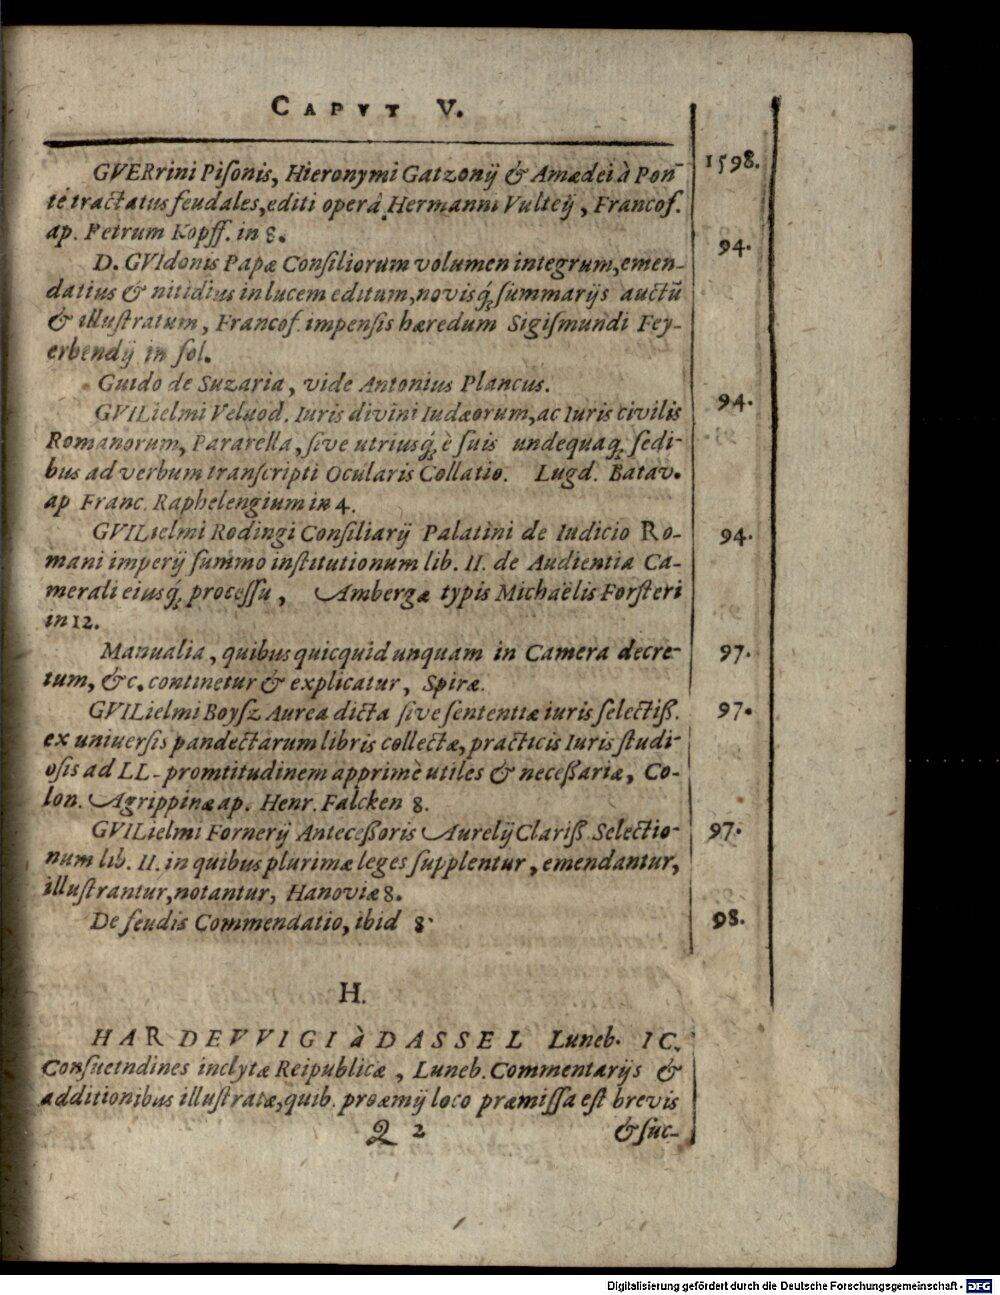 CAPVT V.
GVERrini Piſonis, Hieronymi Gatzonij & Amædei à Pon- 1598.
te tractatus feudales, editi operâ Hermanni Vulteij, Francof.
ap. Petrum Kopff. in 8.
D. GVIdonis Papæ Conſiliorum volumen integrum, emen- 94.
datius & nitidius in lucem editum, novisq́; ſummarijs auctū
& illuſtratum, Francof. impenſis hæredum Sigiſmundi Fey-
erbendij in fol.
Guido de Suzaria, vide Antonius Plancus.
GVILielmi Veluod. Iuris divini Iudæorum, ac Iuris civilis 94.
Romanorum, Pararella, ſive utriusq́; è ſuis undequaq́; ſedi-
bus ad verbum tranſcripti Ocularis Collatio. Lugd. Batav.
ap Franc. Raphelengium in 4.
GVILielmi Rodingi Conſiliarij Palatini de Iudicio Ro- 94.
mani imperij ſummo inſtitutionum lib. II. de Audientia Ca-
merali eiusq́; proceſſu, Ambergæ typis Michaëlis Forſteri
in 12.
Manualia, quibus quicquid unquam in Camera decre- 97.
tum, &c. continetur & explicatur, Spiræ.
GVILielmi Boyſz Aurea dicta ſive ſententiæ iuris ſelectiß. 97.
ex univerſis pandectarum libris collectæ, practicis Iuris ſtudi-
oſis ad LL- promtitudinem apprimè utiles & neceßariæ, Co-
lon. Agrippinæ ap. Henr. Falcken 8.
GVILielmi Fornerij Anteceßoris Aurelij Clariß. Selectio- 97.
num lib. II. in quibus plurimæ leges ſupplentur, emendantur,
illuſtrantur, notantur, Hanoviæ 8.
De feudis Commendatio, ibid 8. 98.
H.
HARDEVVIGI à DASSEL Luneb. IC.
Conſuetndines inclytæ Reipublicæ, Luneb. Commentarijs &
additionibus illuſtratæ, quib. proæmij loco præmiſſa eſt brevis
Q 2 & ſuc-
Digitalisierung gefördert durch die Deutsche Forschungsgemeinschaft - DFG